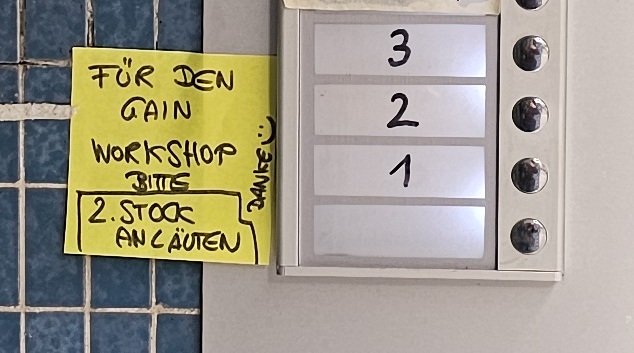 FÜR DEN
GAIN
WORKSHOP
BITTE
2. STOCK
ANLÄUTEN
DANKE :)
3
2
1